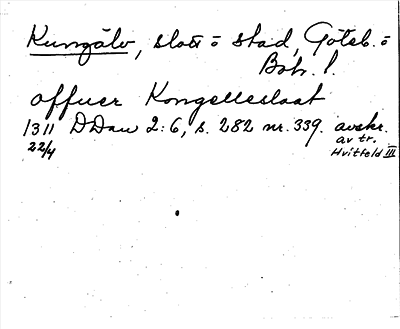 Kungälv, slott o stad, Göteb. o
Boh. l.
offuer Kongelleslaat
1311 DDan 2:6, s. 282 nr. 339. avskr.
22/4 av tr.
Hvitfeld III